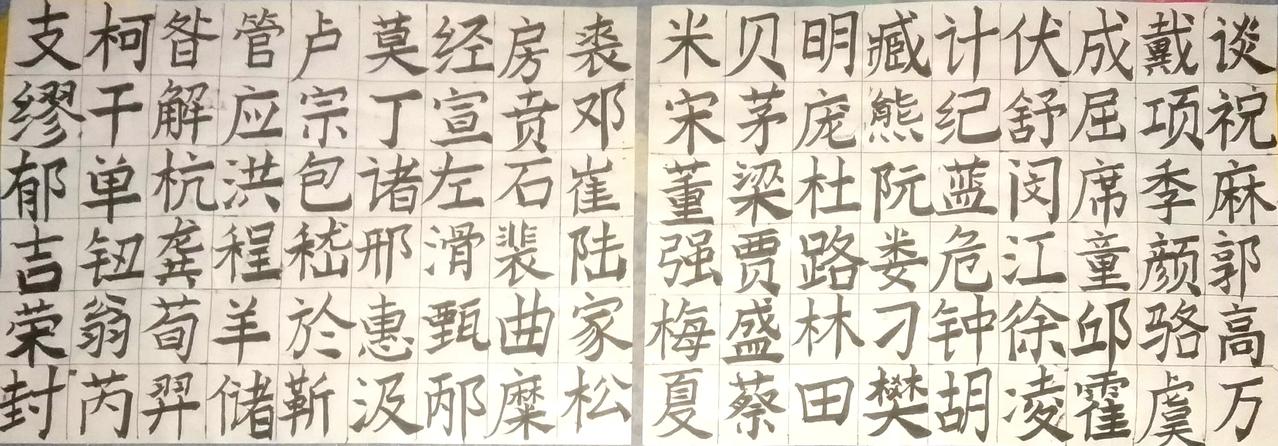 支柯昝管卢莫经房裘
缪干解应宗丁宣贲邓
郁单杭洪包诸左石崔
吉钮龚程嵇邢滑裴陆
荣翁荀羊於惠甄曲家
封芮羿储靳汲邴糜松
米贝明臧计伏成戴谈
宋茅庞熊纪舒屈项祝
董梁杜阮蓝闵席季麻
强贾路娄危江童颜郭
梅盛林刁钟徐邱骆高
夏蔡田樊胡凌霍虞万